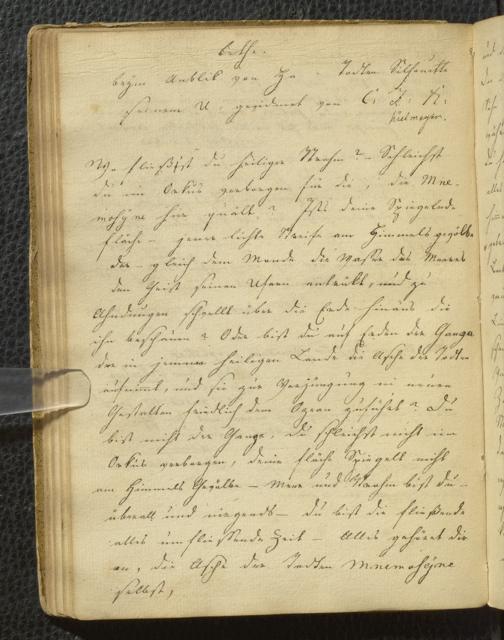 Lethe.
beym Anblik von Za Todten Silhouette
seinem U. gewidmet von C. F. K.
Kielmeyer.
Wo fließist du heiliger Strohm? – Schleichst
du im Orkus verborgen für die, die Mne-
mosyne hier quält? Ists deine Spiegelnde
fläche – jener lichte Streife am Himmels gewölbe
der – gleich dem Monde die Masse des Meeres
den Geist seinen Ufern entrükt, und zu
Ahndungen schwellt über die Erde hinaus die
ihn beschauen? Oder bist du auf Erden der Ganga
der in jenem heiligen Lande die Asche der Todten
aufnimt, und sie zur Verjüngung in neuen
Gestalten friedlich dem Ozean zuführt? Du
bist nicht der Ganga, du schleichst nicht im
Orkus verborgen, deine fläche Spiegelt nicht
am Himmels Gewölbe – Meer und Strohm bist du –
überall und niergends – du bist die fließende
alles umfliessende Zeit – Alles gehöret dir
an, die Asche der Todten Mnemosyne
selbst,